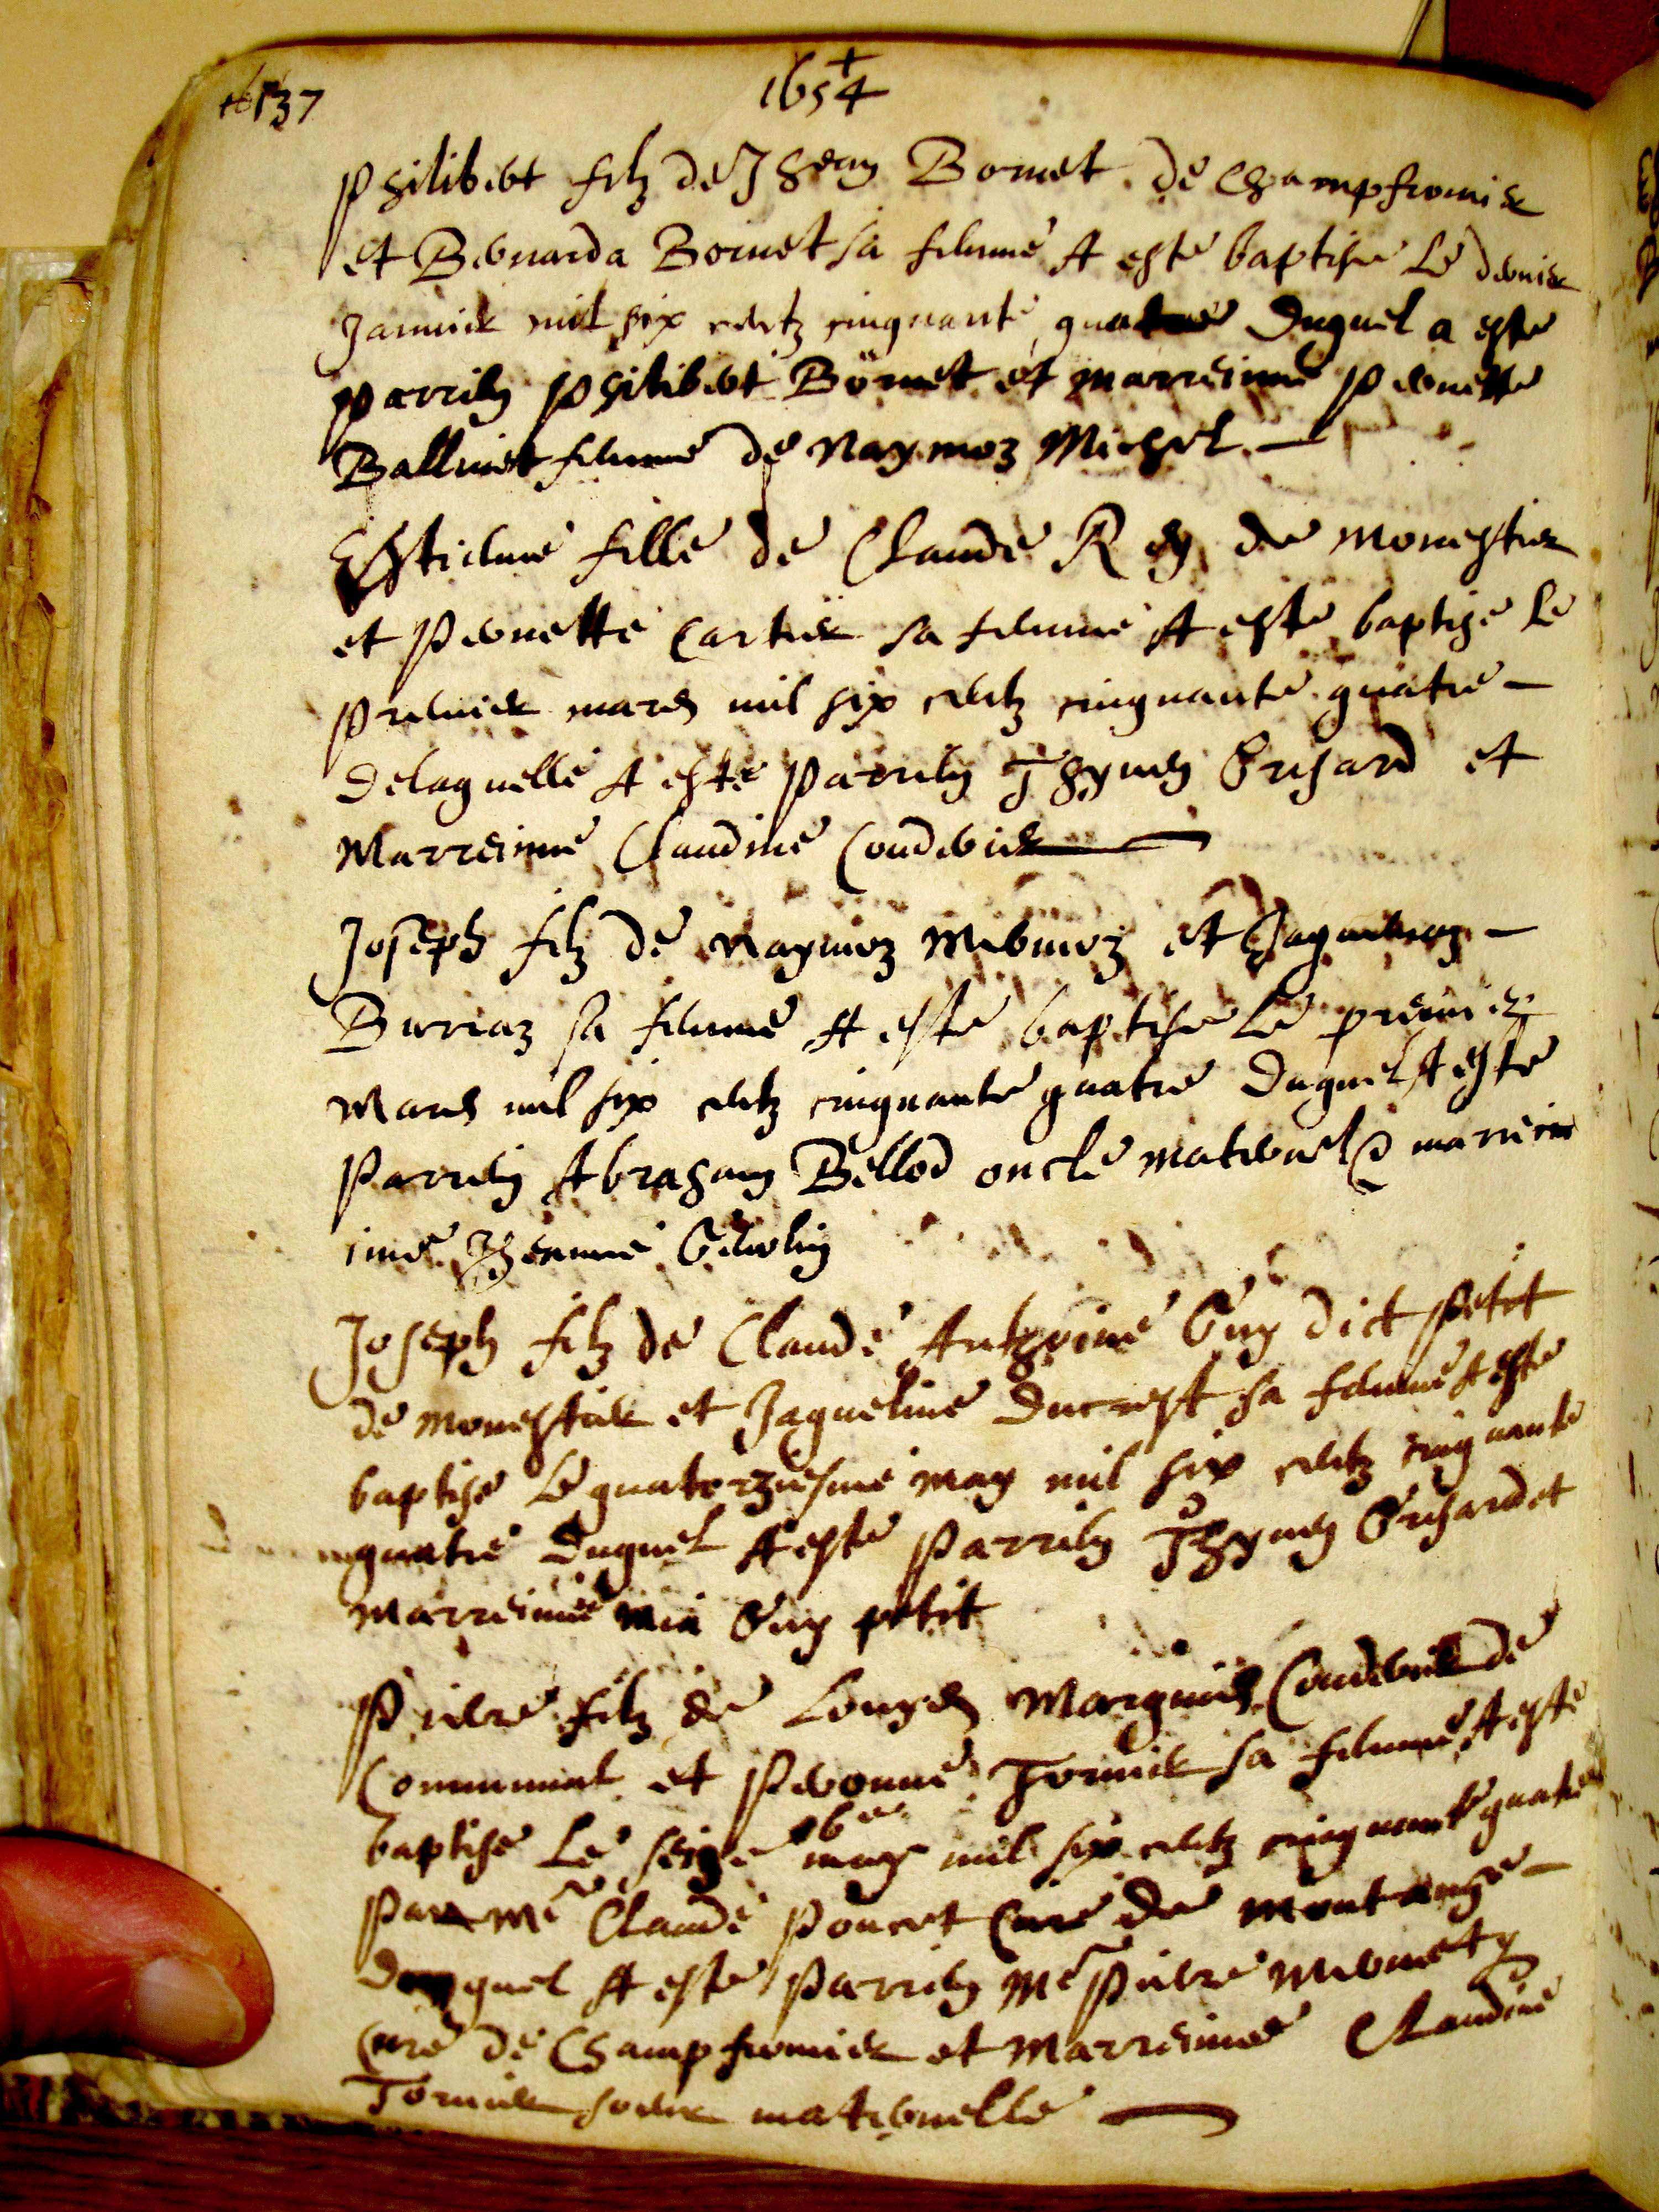 137
1654
Philibert filz de Jhean Bornet de Champfromier
et Bernarda Bornet sa femme A esté baptisé Le dernier
Janvier mil six centz cinquante quatre Duquel a esté
parrein Philibert Bornet et marreinne Pernette
Ballivet femme de Naymoz Michel
Esti fille de Claude Rey de Monestier
et Pernette Cartier sa femme A esté baptisé Le
premier mars mil six centz cinquante quatre
Delaquelle A esté parrein Thyven Grisard et
Marreinne Claudine Coudurier
Joseph filz de Naymoz Mermoz et
Burriaz sa femme A esté baptisé Le premier
Mars mil six centz cinquante quatre Duquel A esté
Parrein Abraham Bellod oncle maternel & marrein
inne Jhenne
Joseph filz de Claude Anthoine Guy dict petit
de Monestier et Jaqueline Ducrest sa femme A esté
baptisé Le quatorziesme may mil six centz cinquante
quatre Duquel A esté Parrein Thyven Grisard et
Marreinne Mia Guy petit
Pierre filz de Louys Marquis Coudurier de
Communal et Pernonne Tornier sa femme A esté
baptisé Le seize may mil six centz cinquante quatre
Par Me Claude Poncet Curé de Montange
Duquel A esté Parrein Me Pierre Mermety
Curé de Champfromier et Marreinne Claudine
Tornier soeur maternelle